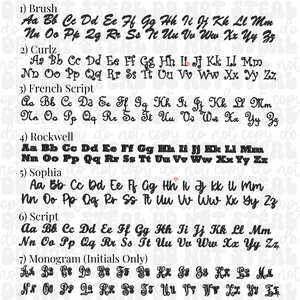 1) Brush
Aa Bb Cc Dd Ee Ff Gg Hh Ii Jj Kk Ll Mm
Nn Oo Pp Qq Rr Ss Tt Uu Vv Ww Xx Yy Zz
2) Curlz
Aa Bb Cc Dd Ee Ff Gg Hh Ii Jj Kk Ll Mm
Nn Oo Pp Qq Rr Ss Tt Uu Vv Ww Xx Yy Zz
3) French Script
Aa Bb Cc Dd Ee Ff Gg Hh Ii Jj Kk Ll Mm
Nn Oo Pp Qq Rr Ss Tt Uu Vv Ww Xx Yy Zz
4) Rockwell
Aa Bb Cc Dd Ee Ff Gg Hh Ii Jj Kk Ll Mm
Nn Oo Pp Qq Rr Ss Tt Uu Vv Ww Xx Yy Zz
5) Sophia
Aa Bb Cc Dd Ee Ff Gg Hh Ii Jj Kk Ll Mm
Nn Oo Pp Qq Rr Ss Tt Uu Vv Ww Xx Yy Zz
6) Script
Aa Bb Cc Dd Ee Ff Gg Hh Ii Jj Kk Ll Mm
Nn Oo Pp Qq Rr Ss Tt Uu Vv Ww Xx Yy Zz
7) Monogram (Initials Only)